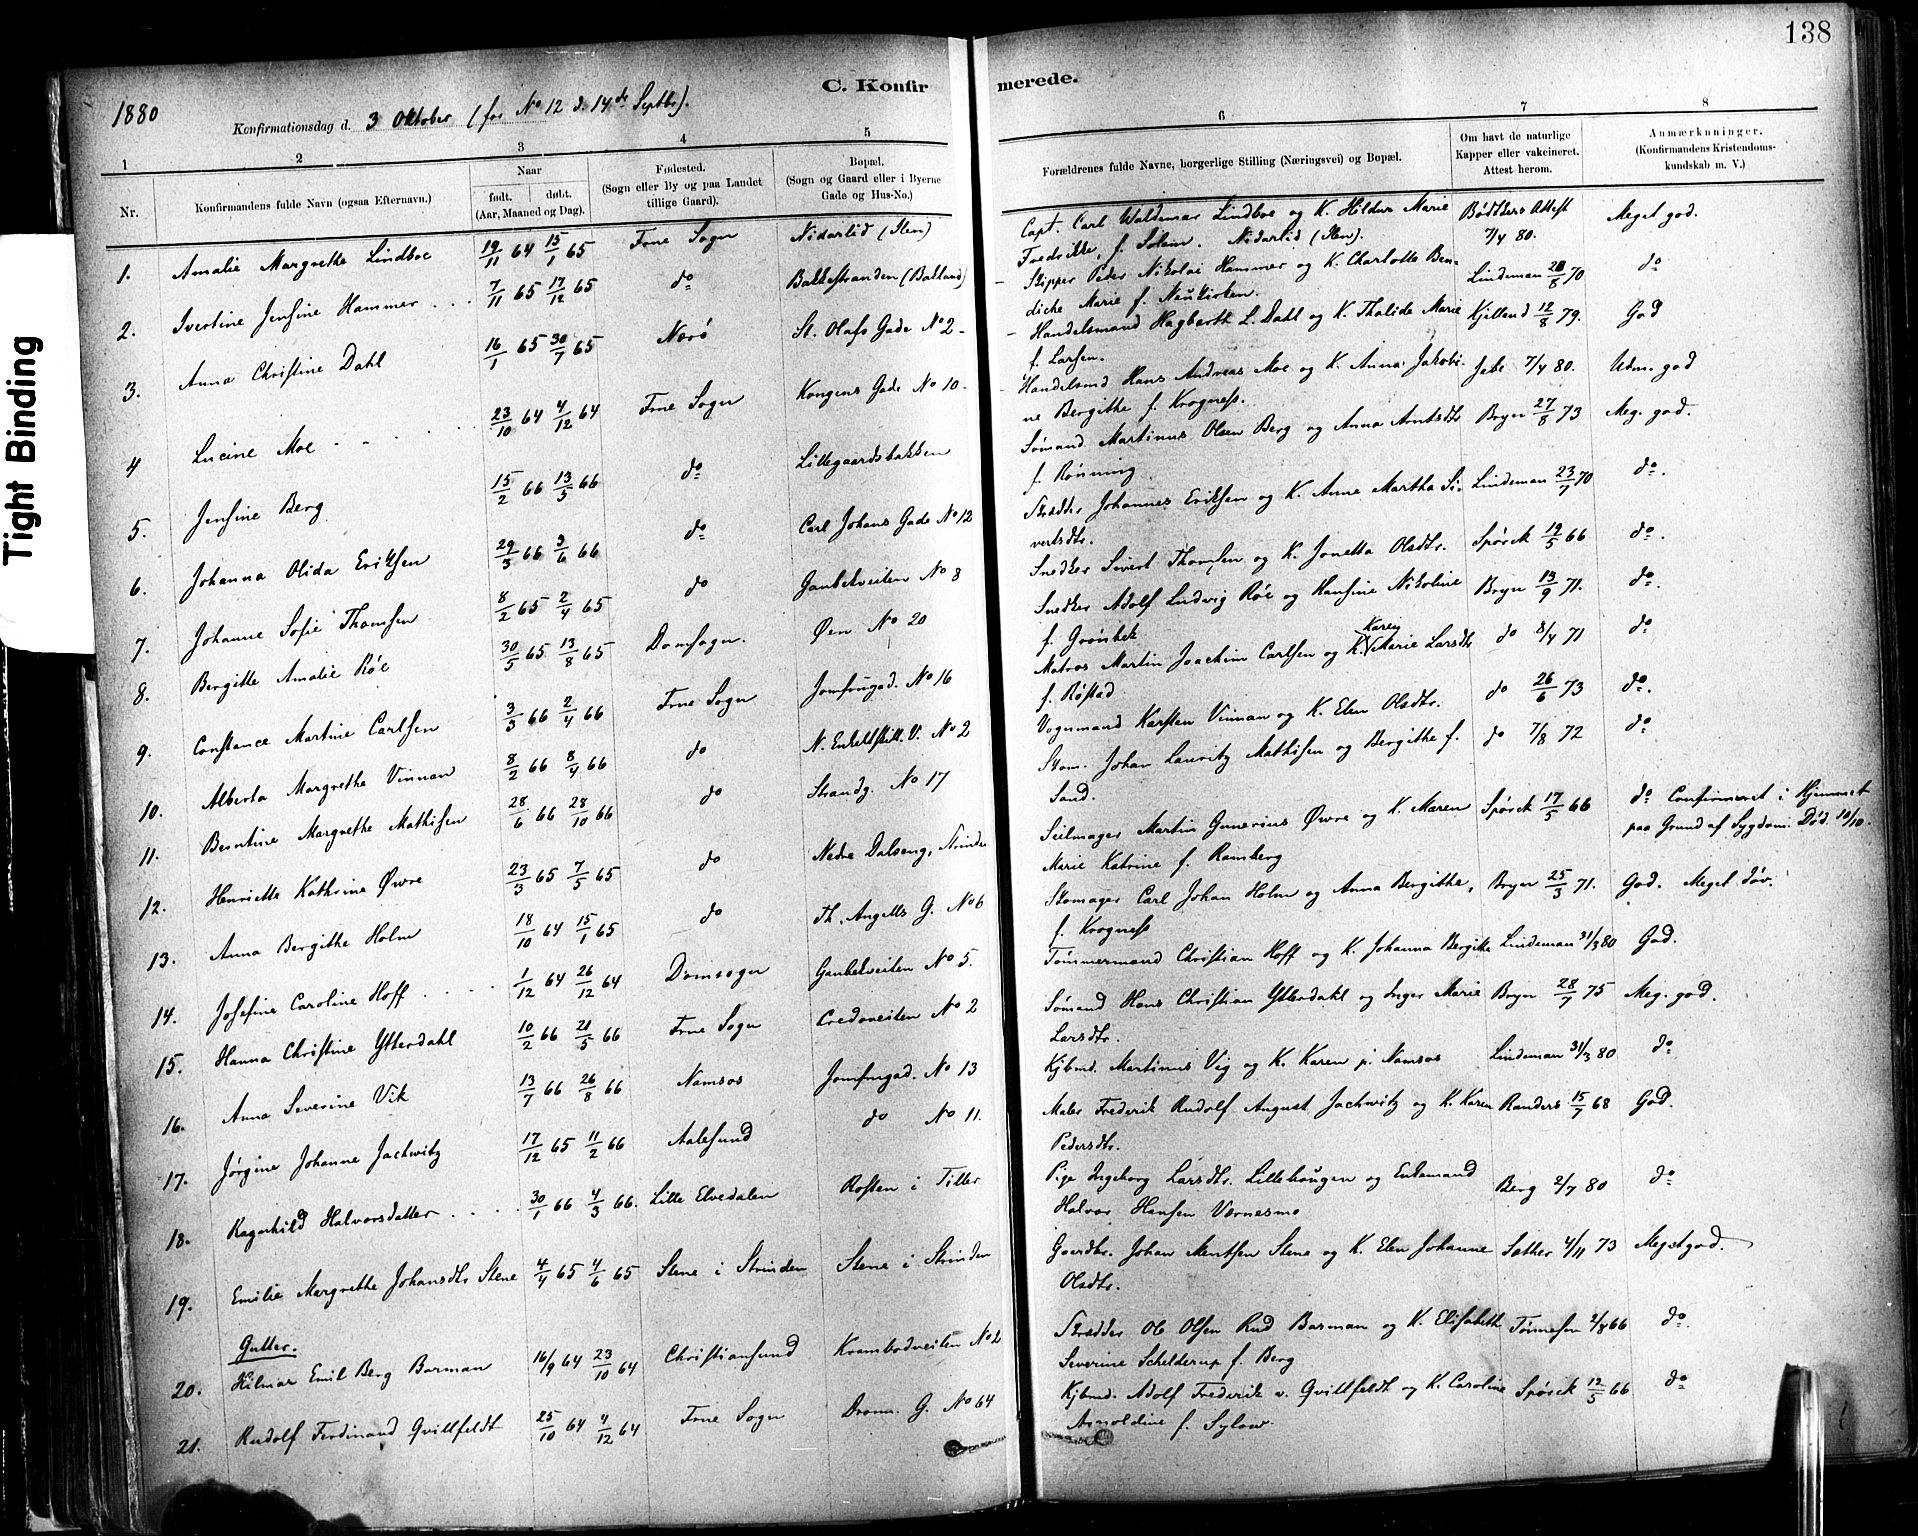 138
C. Konfirmerede.
1880
Konfirmationsdag d. 3 Oktober (for No 12 d. 14de Septbr).
1 2 3 4 5 6 7 8
Nr.
Konfirmandens fulde Navn (ogsaa Efternavn.)
Naar
født. døbt.
(Aar, Maaned og Dag).
Fødested.
(Sogn eller By og paa Landet
tillige Gaard).
Bopæl.
(Sogn og Gaard eller i Byerne
Gade og Hus-No.)
Forældrenes fulde Navne, borgerlige Stilling (Næringsvei) og Bopæl.
Om havt de naturlige
Kapper eller vakcineret.
Attest herom.
Anmærkninger.
(Konfirmandens Kristendoms-
kundskab m. V.)
1. Amalie Margrethe Lindboe 19/11 64 15/1 65 Frue Sogn Nidarlid (Ilen) Capt. Carl Waldemar Lindboe og K. Hildur Marie Bødtkers Attest 7/4 80. Meget god.
Fredrikke, f. Solem. Nidarlid (Ilen).
2. Ivertine Jensine Hammer 7/11 65 17/12 65 do Bakkestranden (Bakland) Skipper Peder Nikolai Hammer og K. Charlotte Ben- Lindeman 28/8 70 do
dicte Marie f. Neukirken.
3. Anna Christine Dahl 16/1 65 30/7 65 Nærö St. Olafs Gade No 2 Handelsmand Hagbarth L. Dahl og K. Thalide Marie Kjelland 12/8 79. God
f. Larsen.
4 Lucine Moe 23/10 64 4/12 64 Frue Sogn Kongens Gade No 10 Handelsmd Hans Andreas Moe og K. Anna Jakobi- 7/4 80. Udm. god
ne Bergithe f. Krogness.
5. Jensine Berg 15/2 66 13/5 66 do Lillegaardsbakken Sømand Martinus Olsen Berg og Anna Arntsdtr Bryn 27/8 73 Meg. god.
f. Rønning
6. Johanna Olida Eriksen 29/3 66 3/6 66 do Carl Johans Gade No 12 Skrædder Johannes Eriksen og K. Anne Martha Si- Lindeman 23/7 70 do.
vertsdtr.
7. Johanne Sofie Thomsen 8/2 65 2/4 65 do Gaubekveiten No 8 Snedker Sivert Thomsen og K. Jonetta Olsdtr. Spörck 12/5 66 do.
8. Bergitte Amalie Röe 30/5 65 13/8 65 Domsogn. Øen No 20 Snedker Adolf Ludvig Röe og Hansine Nikoline Bryn 13/9 71. do.
f. Grönbek
9. Constance Martine Carlsen 3/3 66 2/4 66 Frue Sogn Jomfrugad. No 16 Matros Martin Joachim Carlsen og K. Karen Marie Larsdtr do 8/4 71 do
f. Røstad
10. Alberta Margrethe Vinnan 8/2 66 8/4 66 do N. Enkeltskill. V. No 2 Vognmand Karsten Vinnan og K. Elen Olsdtr. do 26/6 73 do.
11. Berntine Margrethe Mathisen 28/6 66 28/10 66 do Strandg. No 17 Skom. Johan Lauritz Mathisen og Bergithe f. do 7/8 72 do
Sand.
12. Henriette Kathrine Øvre 23/3 65 7/5 65 do Nedre Dalseng, Strinden Seilmager Martin Gunerius Øvre og K. Maren Spörck 17/5 66 do Confirmeret i Hjemmet
Marie Katrine f. Ramberg paa Grund af Sygdom. Död 10/10.
13. Anna Bergithe Holm 18/10 64 15/1 65 do Th. Angells G. No 6 Skomager Carl Johan Holm og Anna Bergithe, Bryn 25/3 71. God. Meget döv.
f. Krogness
14. Josefine Caroline Hoff 1/12 64 26/12 64 Domsogn Gaubekveiten No 5. Tömmermand Christian Hoff og K. Johanna Bergitte Lindeman 31/3 80 God.
15. Hanna Christine Ytterdahl 10/2 66 21/5 66 Frue Sogn Credoveiten No 2 Sømand Hans Christian Ytterdahl og Inger Marie Bryn 28/7 75 Meg. god.
Larsdtr.
16. Anna Severine Vik 13/7 66 26/8 66 Namsos Jomfrugad. No 13 Kjbmd. Martinus Vig og K. Karen p. Namsos Lindeman 31/3 80 do
17. Jørgine Johanne Jachwitz 17/12 65 11/2 66 Aalesund do No 11. Maler Frederik Rudolf August Jachwitz og K. Karen Randers 15/7 68 God.
Pedersdtr.
18. Ragnhild Halvorsdatter 30/1 66 4/3 66. Lille Elvedalen Rosten i Tiller Pige Ingeborg Larsdtr. Lillehaugen og Enkemand Berg 2/7 80 do
Halvor Hansen Vornesmo
19. Emilie Margrethe Johansdtr Stene 4/4 65 4/6 65 Stene i Strinden Stene i Strinden Gaardbr. Johan Arntsen Stene og K. Elen Johanne Sather 4/11 73 Meget god.
Olsdtr.
Gutter.
20. Hilmar Emil Berg Barman 16/9 64 23/10 64 Christiansund Krambodveiten No 2 Skrædder Ole Olsen Rud Barman og K. Elisabeth Tönnesen 2/8 66 do.
Severine Schelderup f. Berg
21. Rudolf Ferdinand Qvillfeldt 25/10 64 4/12 64 Frue Sogn Dronn. G. No 64 Kjbmd. Adolf Frederik v. Qvillfeldt og K. Caroline Spörck 12/5 66 do
Arnoldine f. Sylow.
Tight Binding